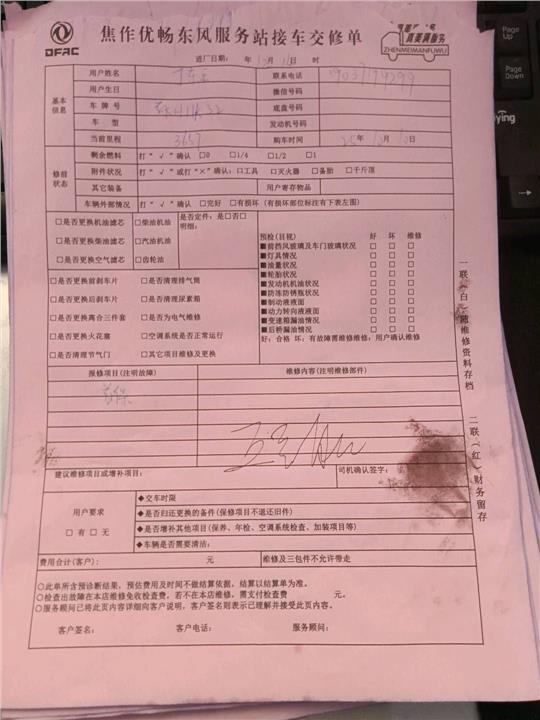 DFAC
焦作优畅东风服务站接车交修单
真美满服务
ZHENMEIMANFUWU
进厂日期: 年 月 日 时
基本信息
用户姓名 联系电话
用户生日 微信号码
车牌号 底盘号码
车型 发动机号码
当前里程 3657 购车时间 年 月 日
修前状态
剩余燃料 打“√”确认 □0 □1/4 □1/2 □1
附件状况 打“√”或打“×”确认: □工具 □灭火器 □备胎 □千斤顶
其它装备 用户寄存物品
车辆外部情况 打“√”确认 □完好 □有损坏 (有损坏部位标注有下表左图)
□是否更换机油滤芯 □柴油机油 是否定件: 是□否□
□是否更换柴油滤芯 □汽油机油 明细:
□是否更换空气滤芯 □齿轮油
□是否更换前刹车片 □是否清理排气筒
□是否更换后刹车片 □是否清理尿素箱
□是否更换离合三件套 □是否为电气维修
□是否更换火花塞 □空调系统是否正常运行
□是否清理节气门 □其它项目维修及更换
预检(目视) 好 坏 维修
■前挡风玻璃及车门玻璃状况 □ □ □
■灯具情况 □ □ □
■油量状况 □ □ □
■轮胎状况 □ □ □
■发动机机油状况 □ □ □
■防冻防锈瓶状况 □ □ □
■制动液液面 □ □ □
■动力转向液液面 □ □ □
■变速箱漏油情况 □ □ □
■后桥漏油情况 □ □ □
好: 合格 坏: 有故障需维修维修: 用户确认维修
报修项目(注明故障) 维修内容(注明维修部件)
首保
建议维修项目或增补项目: 司机确认签字:
用户要求
□有 □无
◆交车时限
◆是否归还更换的备件(保修项目不退还旧件)
◆是否增补其他项目(保养、年检、空调系统检查、加装项目等)
◆车辆是否需要清洁:
费用合计(客户): 元 维修及三包件不允许带走
○此单所含预诊断结果, 预估费用及时间不做结算依据, 结算以结算单为准。
○检查出故障在本店维修免收检查费, 若不在本店维修, 需支付检查费 元。
○服务顾问已将此页内容详细向客户说明, 客户签名则表示已理解并接受此页内容。
客户签名: 客户电话: 服务顾问:
一联(白)随维修资料存档
二联(红)财务留存
Page Up
Page Down